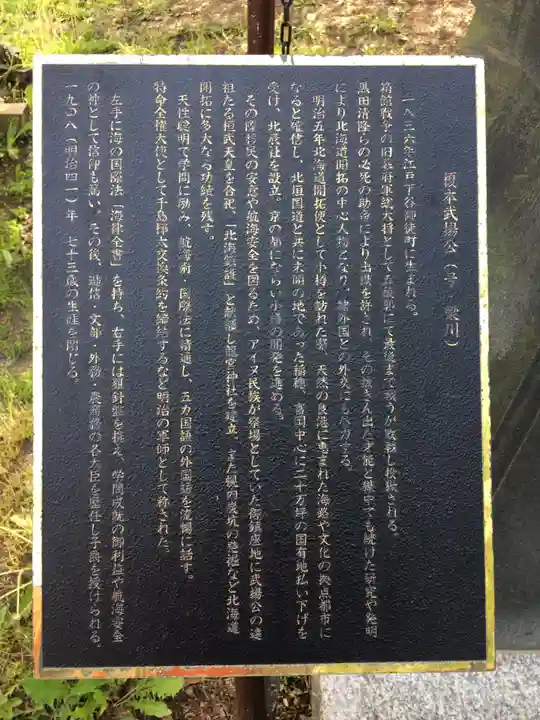 榎本武揚公（号／梁川）
一八三六年江戸下谷御徒町に生まれる。
箱館戦争の旧幕府軍総大将として五稜郭にて最後まで戦うが敗戦し投獄される。
黒田清隆らの必死の助命により出獄を許され、その抜きん出た才能と獄中でも続けた研究や発明
により北海道開拓の中心人物となり、諸外国との外交にも尽力する。
明治五年北海道開拓使として小樽を訪れた際、天然の良港に恵まれた海路や文化の拠点都市に
なると確信し、北垣国道と共に未開の地であった稲穂、富岡中心に二十万坪の国有地払い下げを
受け、北辰社を設立。京の都にならい小樽の開発を進める。
その際移民の安意や航海安全を図るため、アイヌ民族が祭場としていた御鎮座地に武揚公の遠
祖たる桓武天皇を合祀、「北海鎮護」と献額し龍宮神社を建立。また幌内炭坑の発掘など北海道
開拓に多大なる功績を残す。
天性聡明で学問に励み、航海術・国際法に精通し、五カ国語の外国語を流暢に話す。
特命全権大使として千島樺太交換条約を締結するなど明治の軍師として称された。
左手に海の国際法「海律全書」を持ち、右手には羅針盤を携え、学問成就の御利益や航海安全
の神として信仰も篤い。その後、逓信・文部・外務・農商務の各大臣を歴任し子爵を授けられる。
一九〇八（明治四一）年　七十三歳の生涯を閉じる。